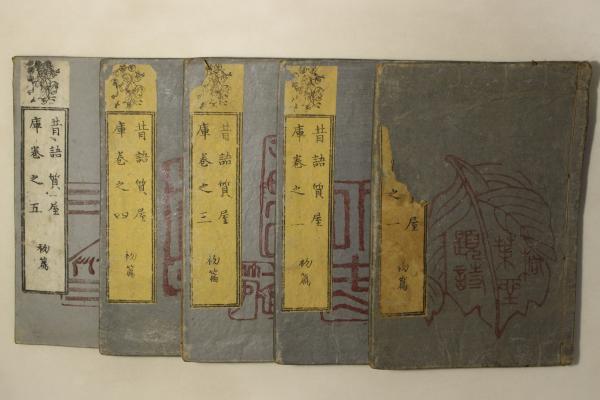 屋
之一
初篇
題詩
昔語質屋
庫巻之
初篇
昔語質屋
庫巻之三
初篇
昔語質屋
庫巻之四
初篇
昔語質屋
庫巻之五
初篇